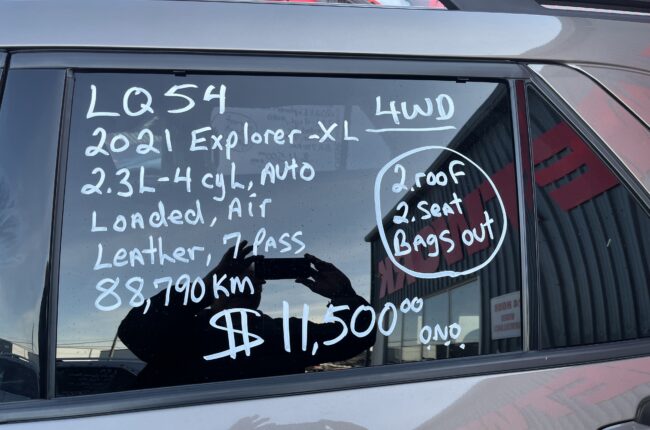 LQ54
4WD
2021 Explorer-XL
2.3L-4 cyL, Auto
Loaded, Air
Leather, 7 Pass
88,790 Km
$11,500.00
O.N.O.
2.roof
2.Seat
Bags out